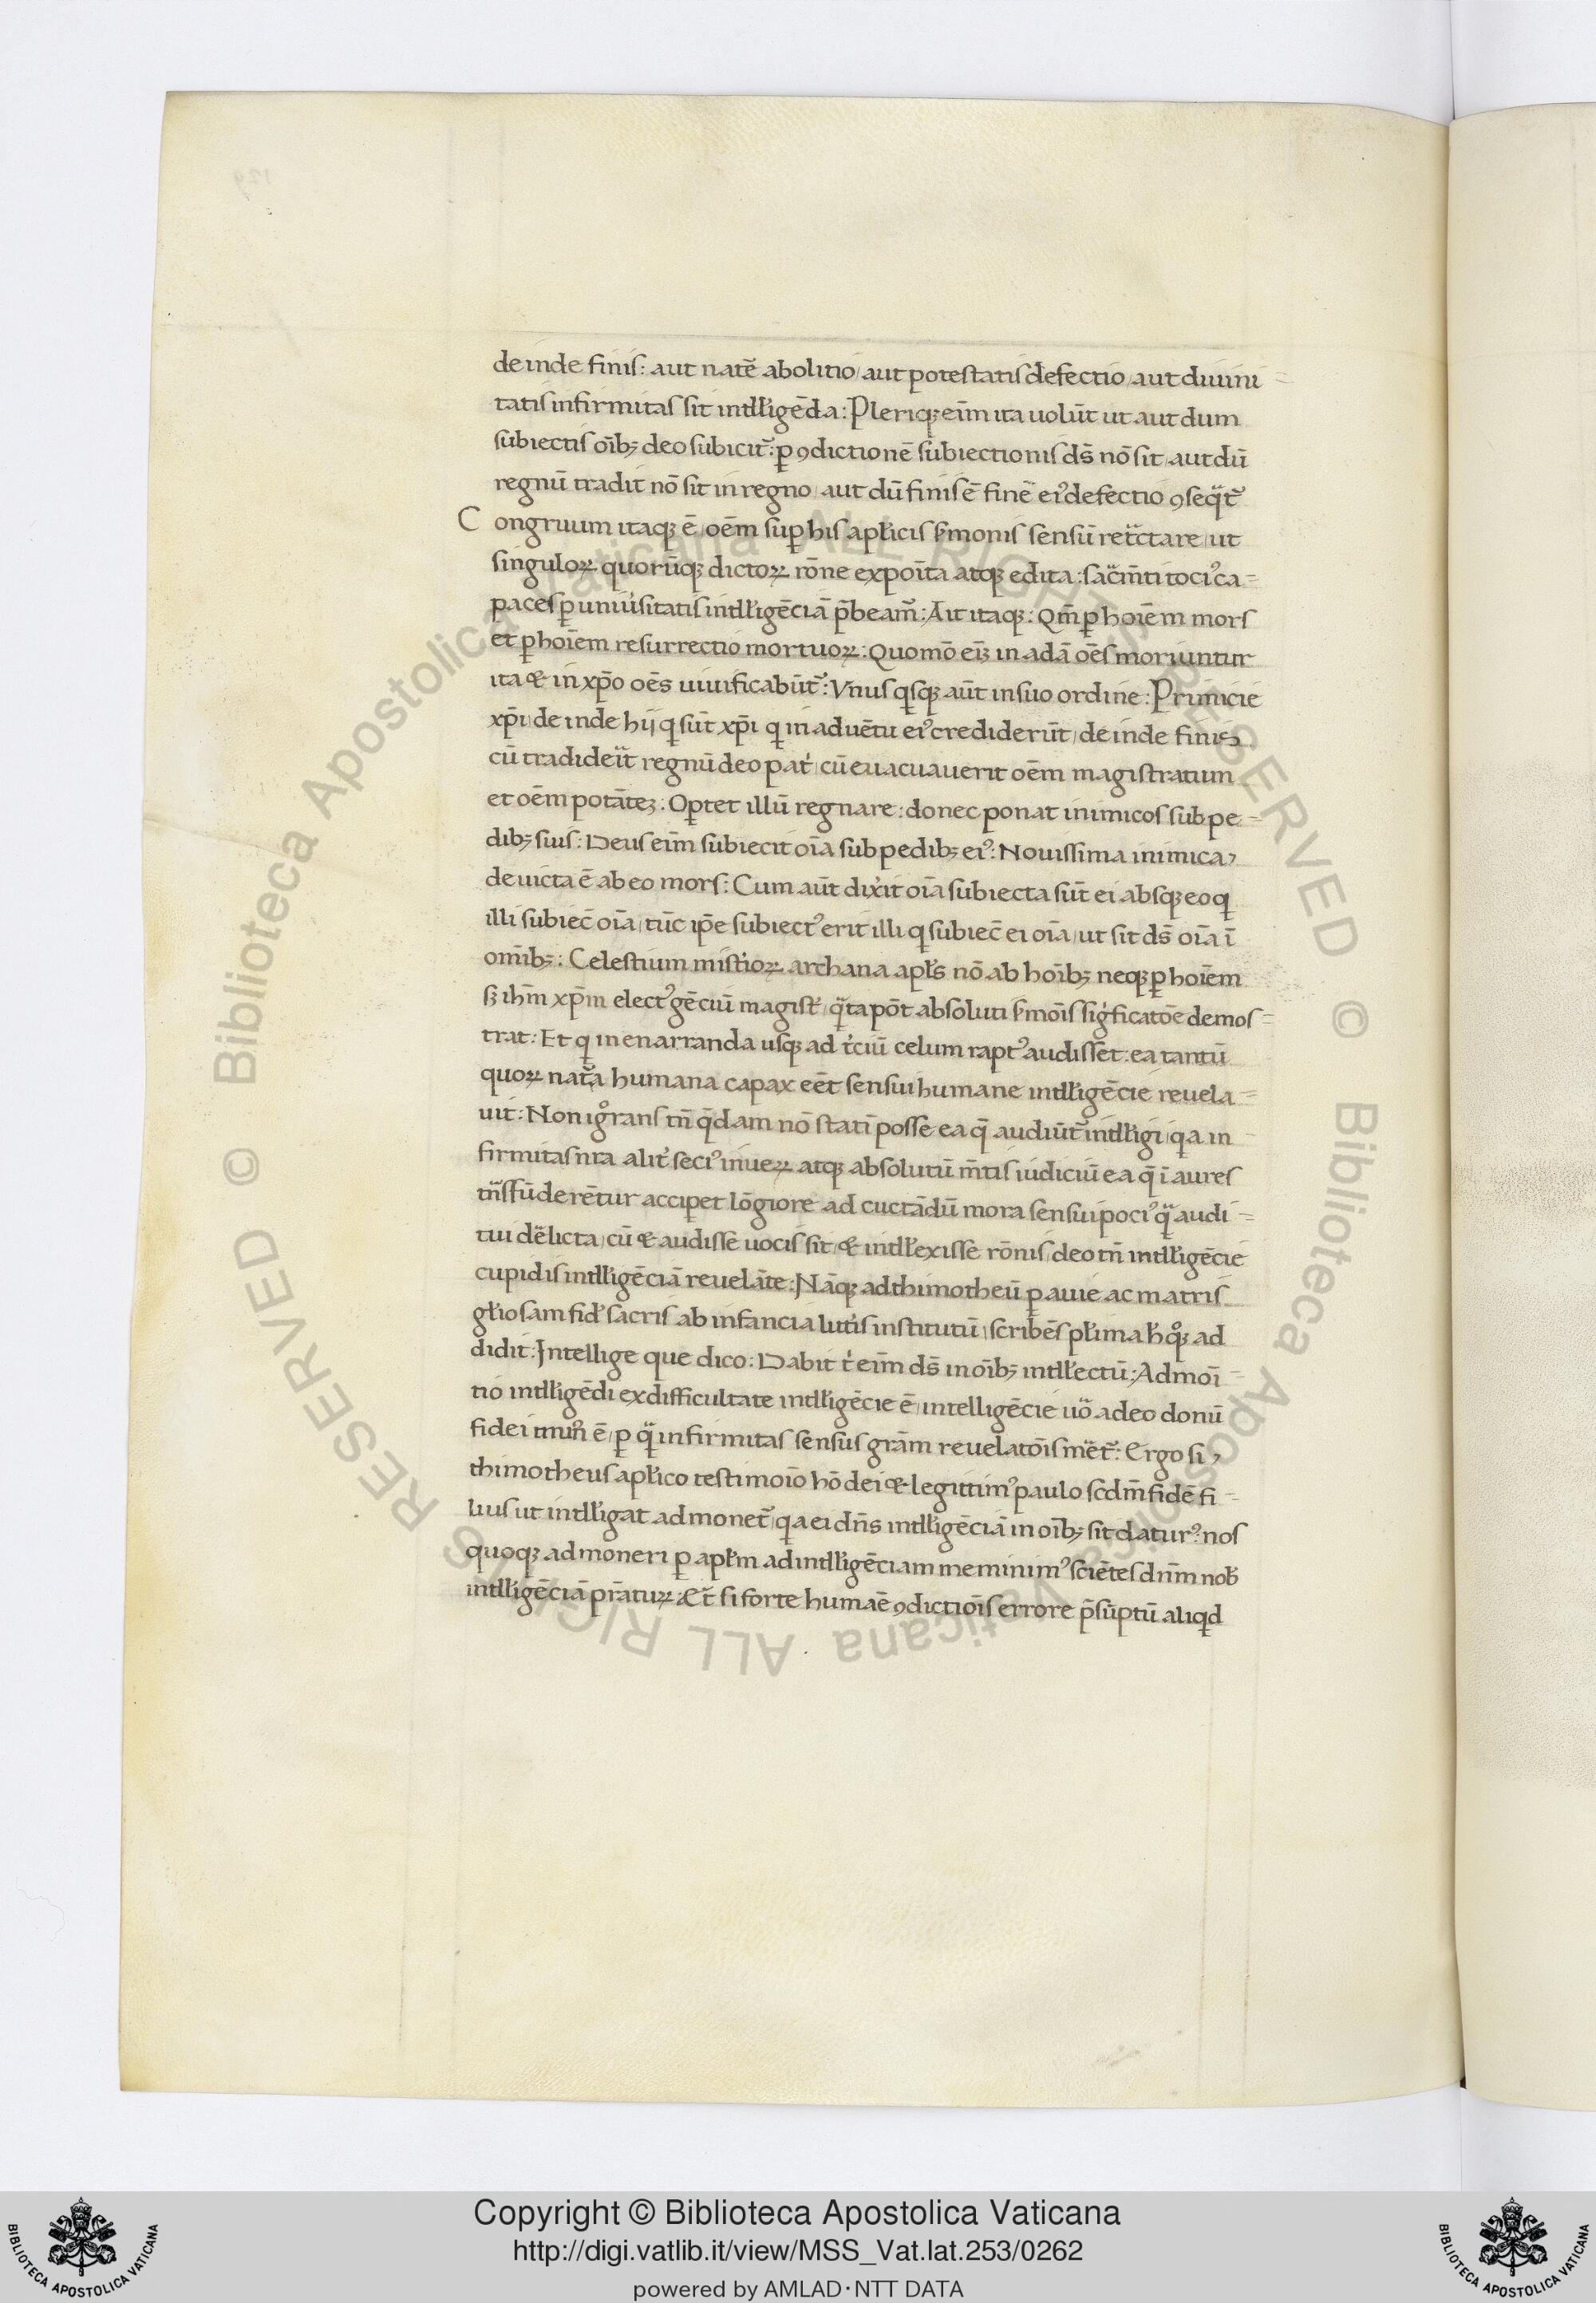 de inde finis: aut natē abolitio, aut potestatis defectio, aut diuini
tatis infirmitas sit intell̓igēda: Pleriqꝫ eīm ita uolūt ut aut dum
subiectis oībꝫ deo subicit᷑: ꝑ ꝯdictionē subiectionis ds̄ nō sit, aut dū
regnū tradit nō sit in regno, aut dū finis ē finē ei᷒ defectio ꝯseqͣt᷑
Congruum itaqꝫ ē, oēm suꝑ his apl̓icis ẜmonis sensū retͣctare, ut
singuloꝝ quorūqꝫ dictoꝝ rōne expoīta atqꝫ edita: sac̄m̄ti toci᷒ ca
paces ꝑ uniu̓sitatis intll̓igēciā p̄beam᷒: Ait itaqꝫ: Qm̄ ꝑ hoīem mors
et ꝑ hoīem resurrectio mortuoꝝ: Quomō eīꝫ in adā oēs moriuntur
ita & in xp̄o oēs uiuificabūt᷑: Vnus qͥsqꝫ aūt in suo ordine: Primicie
xp̄i, de inde hij qͥ sūt xp̄i qͥ in aduētu ei᷒ crediderūt, de inde finis
cū tradideͥt regnū deo pat̓, cū euacuauerit oēm magistratum
et oēm potātēꝫ: Oꝑtet illū regnare: donec ponat inimicos sub pe
dibꝫ suis: Deus eīm subiecit oīa sub pedibꝫ ei᷒: Nouissima inimica
deuicta ē ab eo mors: Cum aūt dix̓it oīa subiecta sūt ei absqꝫ eo qͥ
illi subiec̄ oīa, tūc ip̄e subiect᷒ erit illi qͥ subiec̄ ei oīa, ut sit ds̄ oīa ī
omībꝫ: Celestium mist̓ioꝝ archana apl̓s nō ab hoībꝫ neqꝫ ꝑ hoīem
sꝫ ih̄m xp̄m elect᷒ gēciū magist̓, qͣta pōt absoluti ẜmōis sigͥficatōe demos
trat: Et qͥ in enarranda usqꝫ ad t̓ciū celum rapt᷒ audissēt: ea tantū
quoꝝ nat᷑a humana capax eēt sensui humane intll̓igēcie reuela
uit: Non igͦrans tn̄ q̄dam nō statī posse ea q̄ audiūt᷑ intll̓igi, qͥa in
firmitas nr̄a alit̓ seci᷒ in ueꝝ atqꝫ absolutū m̄tis iudiciū ea q̄ ī aures
tn̄sfūderētur acciꝑet lōgiore ad cūctādū mora sensui poci᷒ qͣ audi
tui delͥcta, cū & audisse uocis sit, & intll̓exisse rōnis, deo tn̄ intll̓igēcie
cupidis intll̓igēciā reuelāte: Nāqꝫ ad thimotheū ꝑ auie ac matris
gl̓iosam fid̓ sacris ab infancia litt̓is institutū, scribēs pl̓ima h̓ qͦqꝫ ad
didit: Intellige que dico: Dabit t̓ eīm ds̄ in oībꝫ intll̓ectū: Admoī
tio intll̓igēdi ex difficultate intll̓igēcie ē, intelligēcie uͦ a deo donū
fidei mun᷒ ē, ꝑ qͣ infirmitas sensus grām reuelatōis met᷑: Ergo si
thimotheus apl̓ico testimoīo hō dei & legittim᷒ paulo scdm̄ fidē fi
lius ut intll̓igat admonet᷑, qͥa ei dn̄s intll̓igēciā in oībꝫ sit datur᷒: nos
quoqꝫ admoneri ꝑ apl̓m ad intll̓igēciam meminim᷒ sciētes dn̄m nob̓
intll̓igēciā pr̄atuꝝ: Et̄ si forte humaē ꝯdictiōis errore p̄sūptū aliqͥd